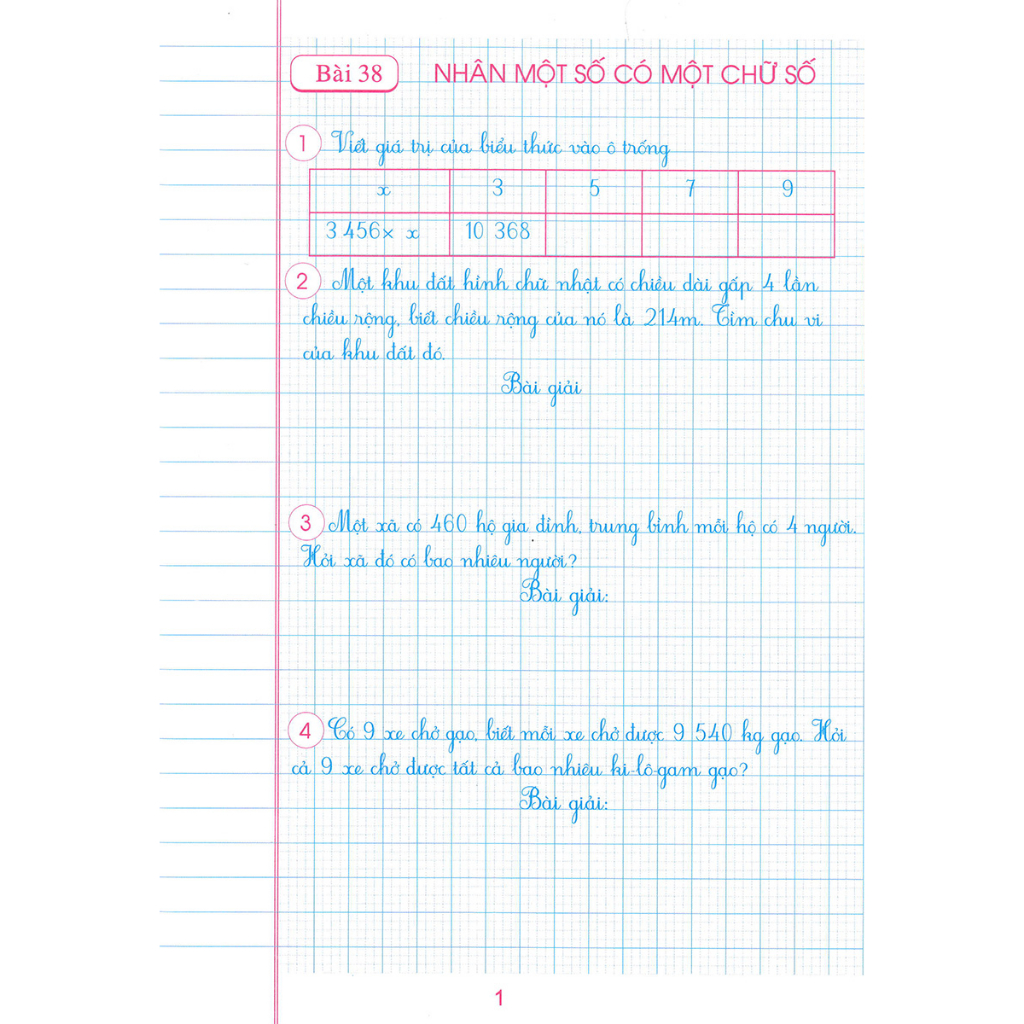 Bài 38 NHÂN MỘT SỐ CÓ MỘT CHỮ SỐ
1 Viết giá trị của biểu thức vào ô trống
x 3 5 7 9
3 456 × x 10 368
2 Một khu đất hình chữ nhật có chiều dài gấp 4 lần
chiều rộng, biết chiều rộng của nó là 214m. Tìm chu vi
của khu đất đó.
Bài giải
3 Một xã có 460 hộ gia đình, trung bình mỗi hộ có 4 người.
Hỏi xã đó có bao nhiêu người?
Bài giải:
4 Có 9 xe chở gạo, biết mỗi xe chở được 9 540 kg gạo. Hỏi
cả 9 xe chở được tất cả bao nhiêu ki-lô-gam gạo?
Bài giải:
1